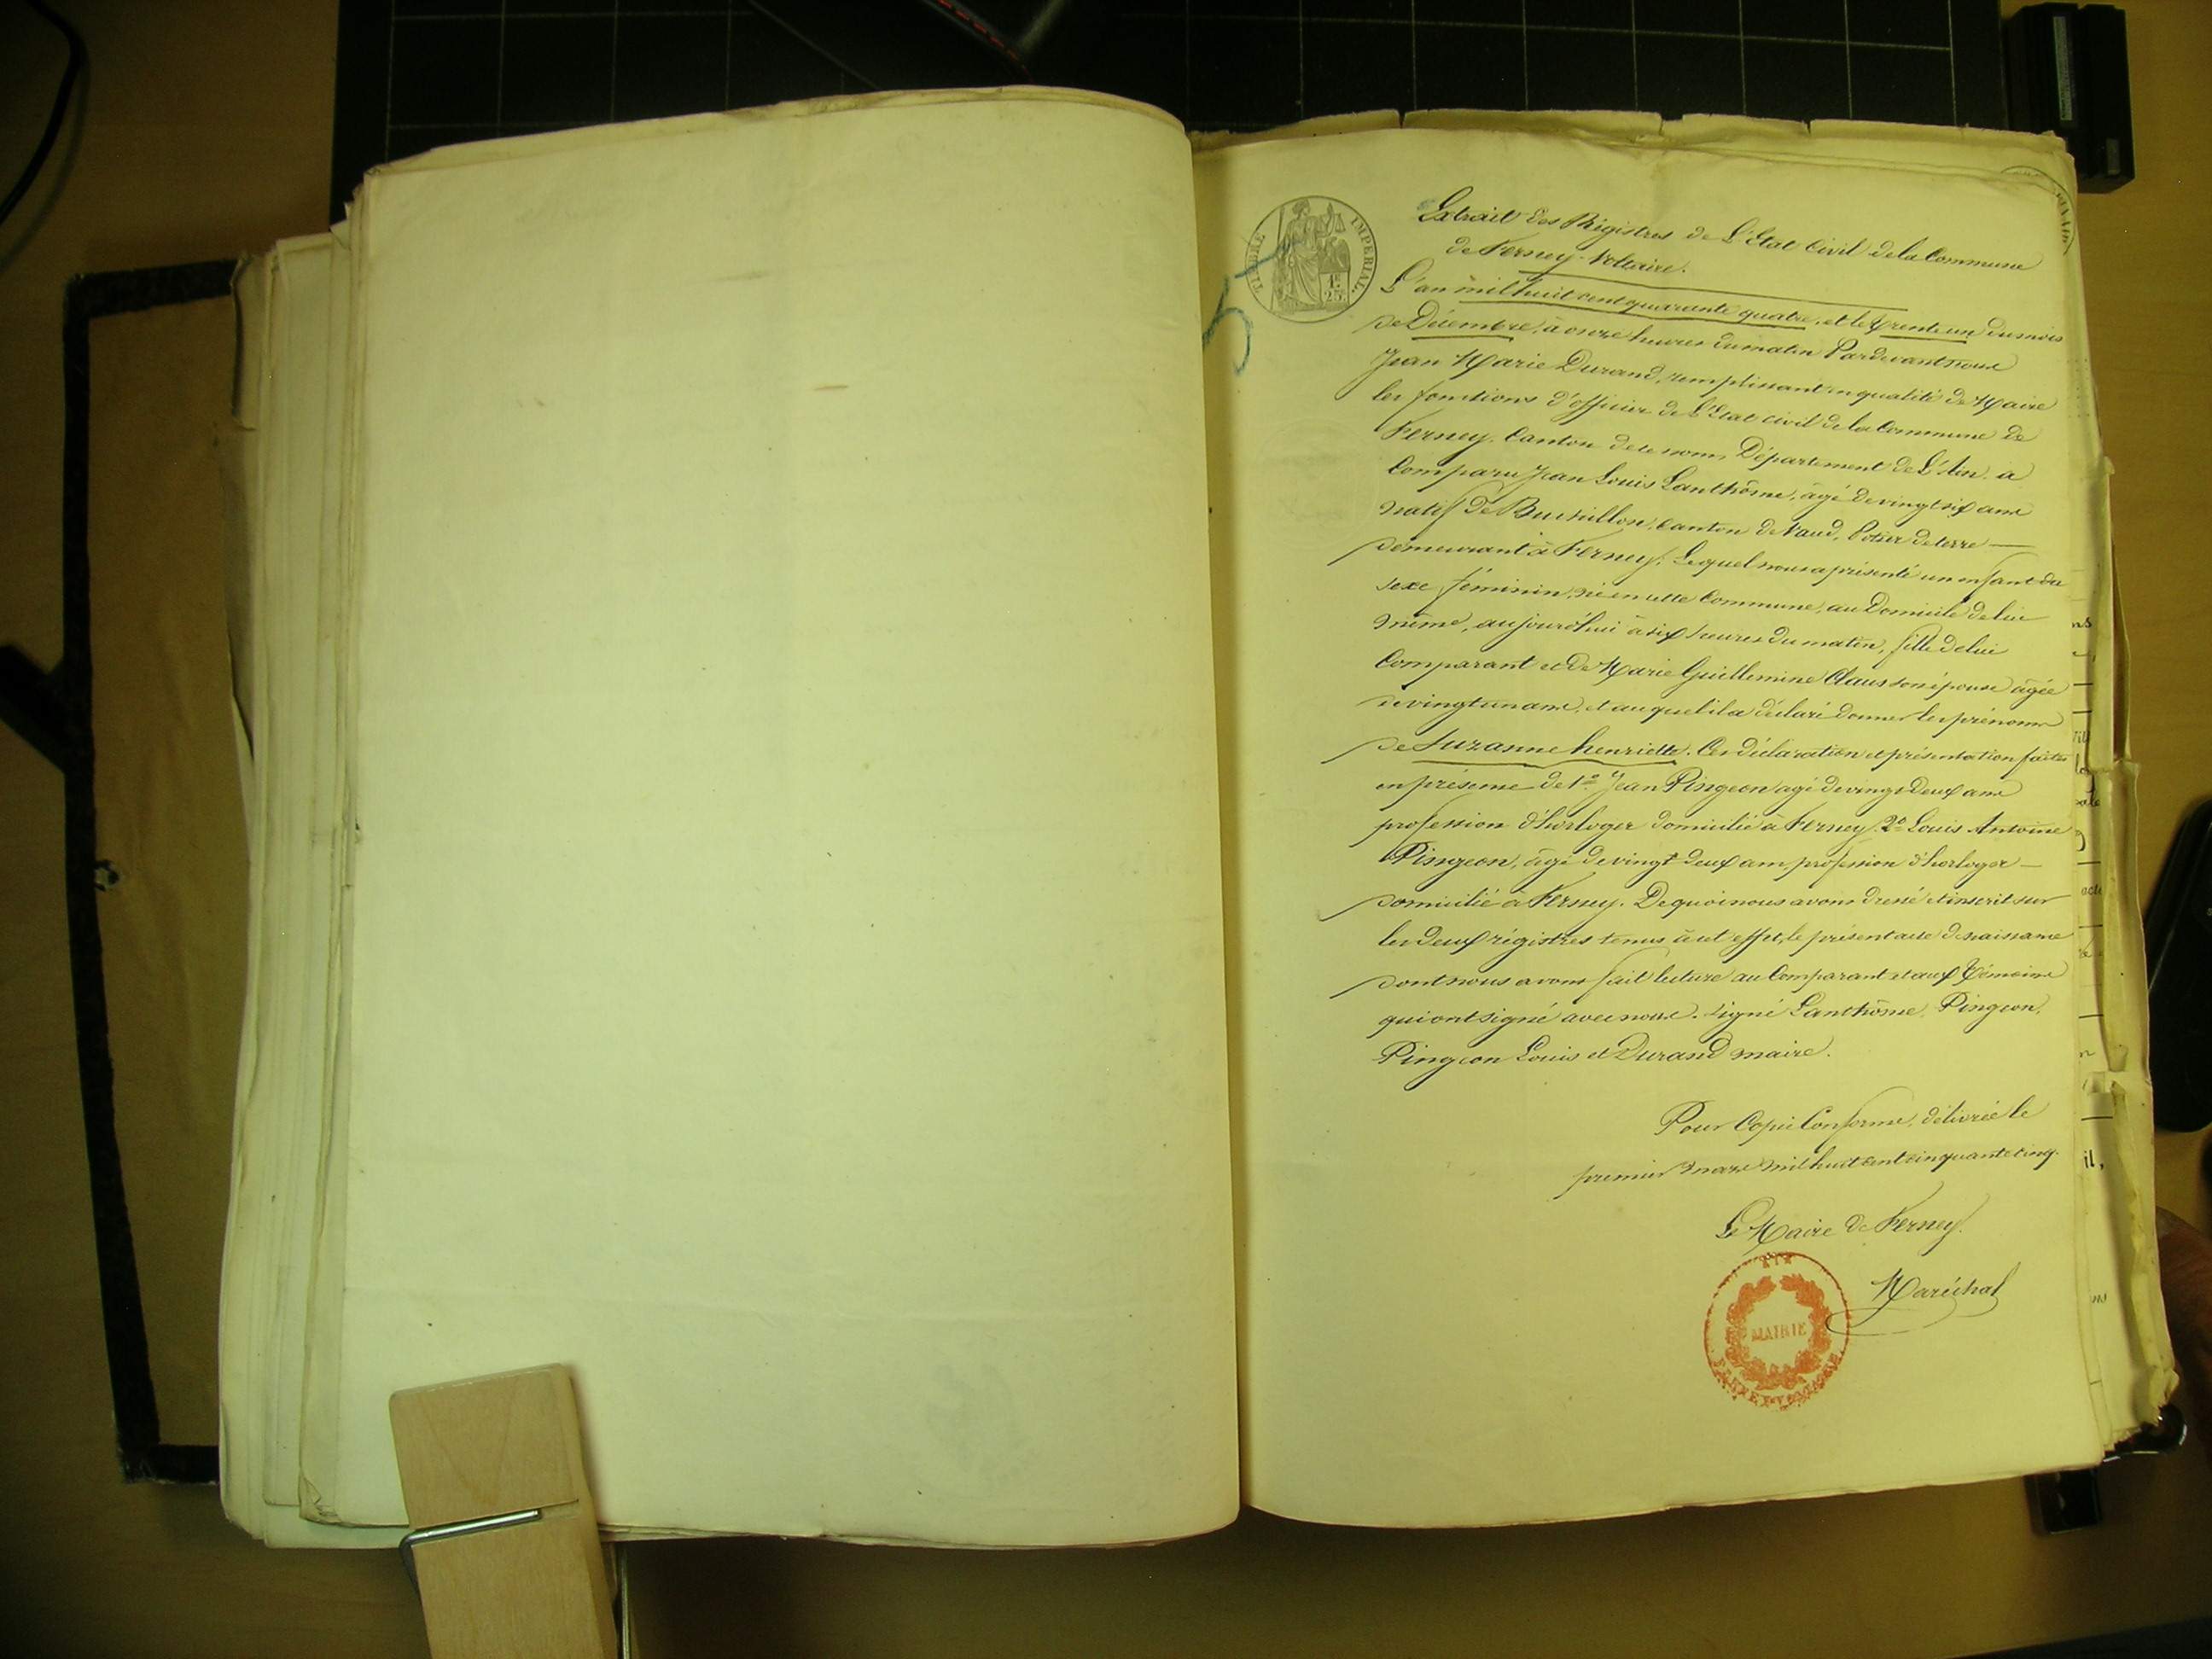 TIMBRE IMPERIAL
1F 25
5
Extrait des Régistres de L'Etat Civil de la Commune
de Ferney-Voltaire.
L'an mil huit cent quarante quatre, et le trente un du mois
de Décembre, à onze heures du matin Pardevant nous
Jean Marie Durand, remplissant en qualité de Maire
les fonctions d'officier de l'Etat civil de la Commune de
Ferney. Canton de ce nom, Département de L'Ain, a
Comparu Jean Louis Lanthôme, âgé de vingt six ans
natif de Buchillon, Canton de Vaud, Potier de terre
demeurant à Ferney, Lequel nous a présenté un enfant du
sexe féminin, né en cette Commune, au Domicile de lui
même, aujourd'hui à six heures du matin, fille de lui
Comparant et de Marie Guillemine Claus son épouse âgée
de vingt un ans, et auquel il a déclaré donner les prénoms
de Suzanne henriette. Ces déclaration et présentation faites
en présence de 1º Jean Pingeon agé de vingt deux ans
profession d'horloger domicilié à Ferney 2º Louis Antoine
Pingeon, âgé de vingt deux ans, profession d'horloger
domicilié à Ferney. De quoi nous avons dressé et inscrit sur
les deux régistres tenus à cet effet, le présent acte de naissance
dont nous avons fait lecture au Comparant et aux témoins
qui ont signé avec nous. signé Lanthôme, Pingeon,
Pingeon Louis et Durand maire.
Pour Copie Conforme, délivrée le
premier mars mil huit cent cinquante cinq.
Le Maire de Ferney.
Maréchal
MAIRIE